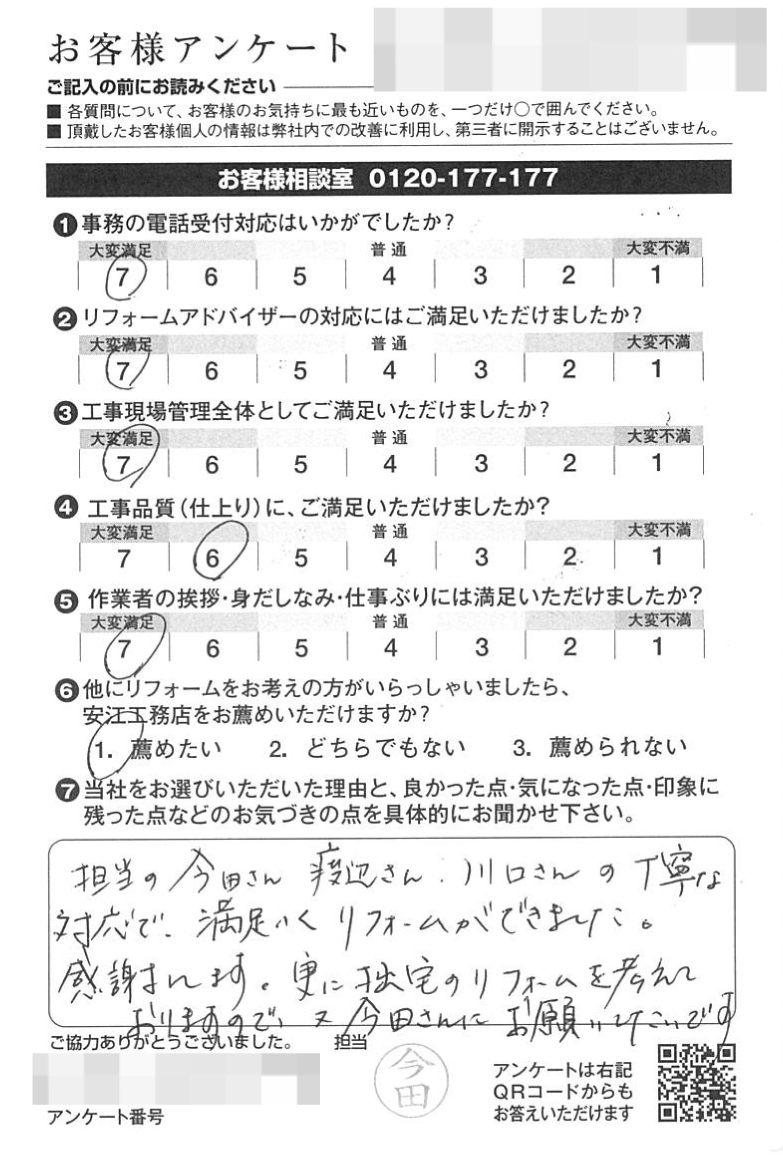 お客様アンケート
ご記入の前にお読みください
■ 各質問について、お客様のお気持ちに最も近いものを、一つだけ○で囲んでください。
■ 頂戴したお客様個人の情報は弊社内での改善に利用し、第三者に開示することはございません。
お客様相談室 0120-177-177
❶ 事務の電話受付対応はいかがでしたか?
大変満足 普通 大変不満
7 6 5 4 3 2 1
❷ リフォームアドバイザーの対応にはご満足いただけましたか?
大変満足 普通 大変不満
7 6 5 4 3 2 1
❸ 工事現場管理全体としてご満足いただけましたか?
大変満足 普通 大変不満
7 6 5 4 3 2 1
❹ 工事品質(仕上り)に、ご満足いただけましたか?
大変満足 普通 大変不満
7 6 5 4 3 2 1
❺ 作業者の挨拶・身だしなみ・仕事ぶりには満足いただけましたか?
大変満足 普通 大変不満
7 6 5 4 3 2 1
❻ 他にリフォームをお考えの方がいらっしゃいましたら、
安江工務店をお薦めいただけますか?
1. 薦めたい 2. どちらでもない 3. 薦められない
❼ 当社をお選びいただいた理由と、良かった点・気になった点・印象に
残った点などのお気づきの点を具体的にお聞かせ下さい。
担当の今田さん 渡辺さん.川口さんの丁寧な
対応で、満足いくリフォームができました。
感謝されます。更に拙宅のリフォームを考えて
おりますので、又今田さんにお願いしたいです
ご協力ありがとうございました。 担当
今田
アンケートは右記
QRコードからも
お答えいただけます
アンケート番号